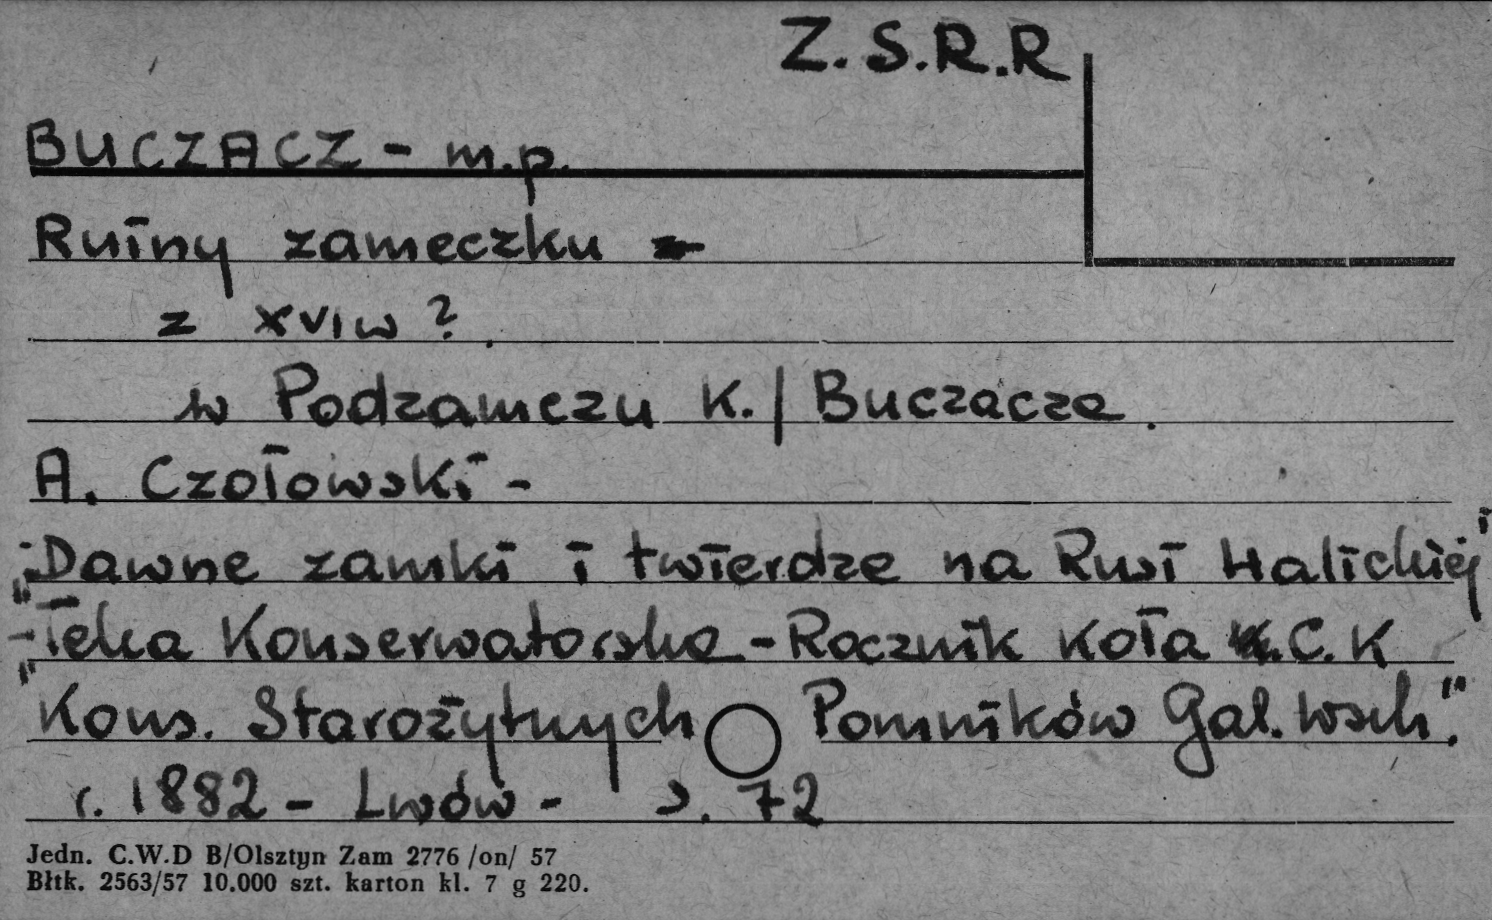 Z.S.R.R
BUCZACZ - m.p.
Ruiny zameczku
z XVI w ?
w Podzamczu k./Buczacza.
A. Czołowski -
"Dawne zamki i twierdze na Rusi Halickiej"
- "Teka Konserwatorska - Rocznik Koła C.K
Kons. Starożytnych Pomników Gal. Wsch".
r. 1882 - Lwów - s. 72
Jedn. C.W.D B/Olsztyn Zam 2776 /on/ 57
Błtk. 2563/57 10.000 szt. karton kl. 7 g 220.